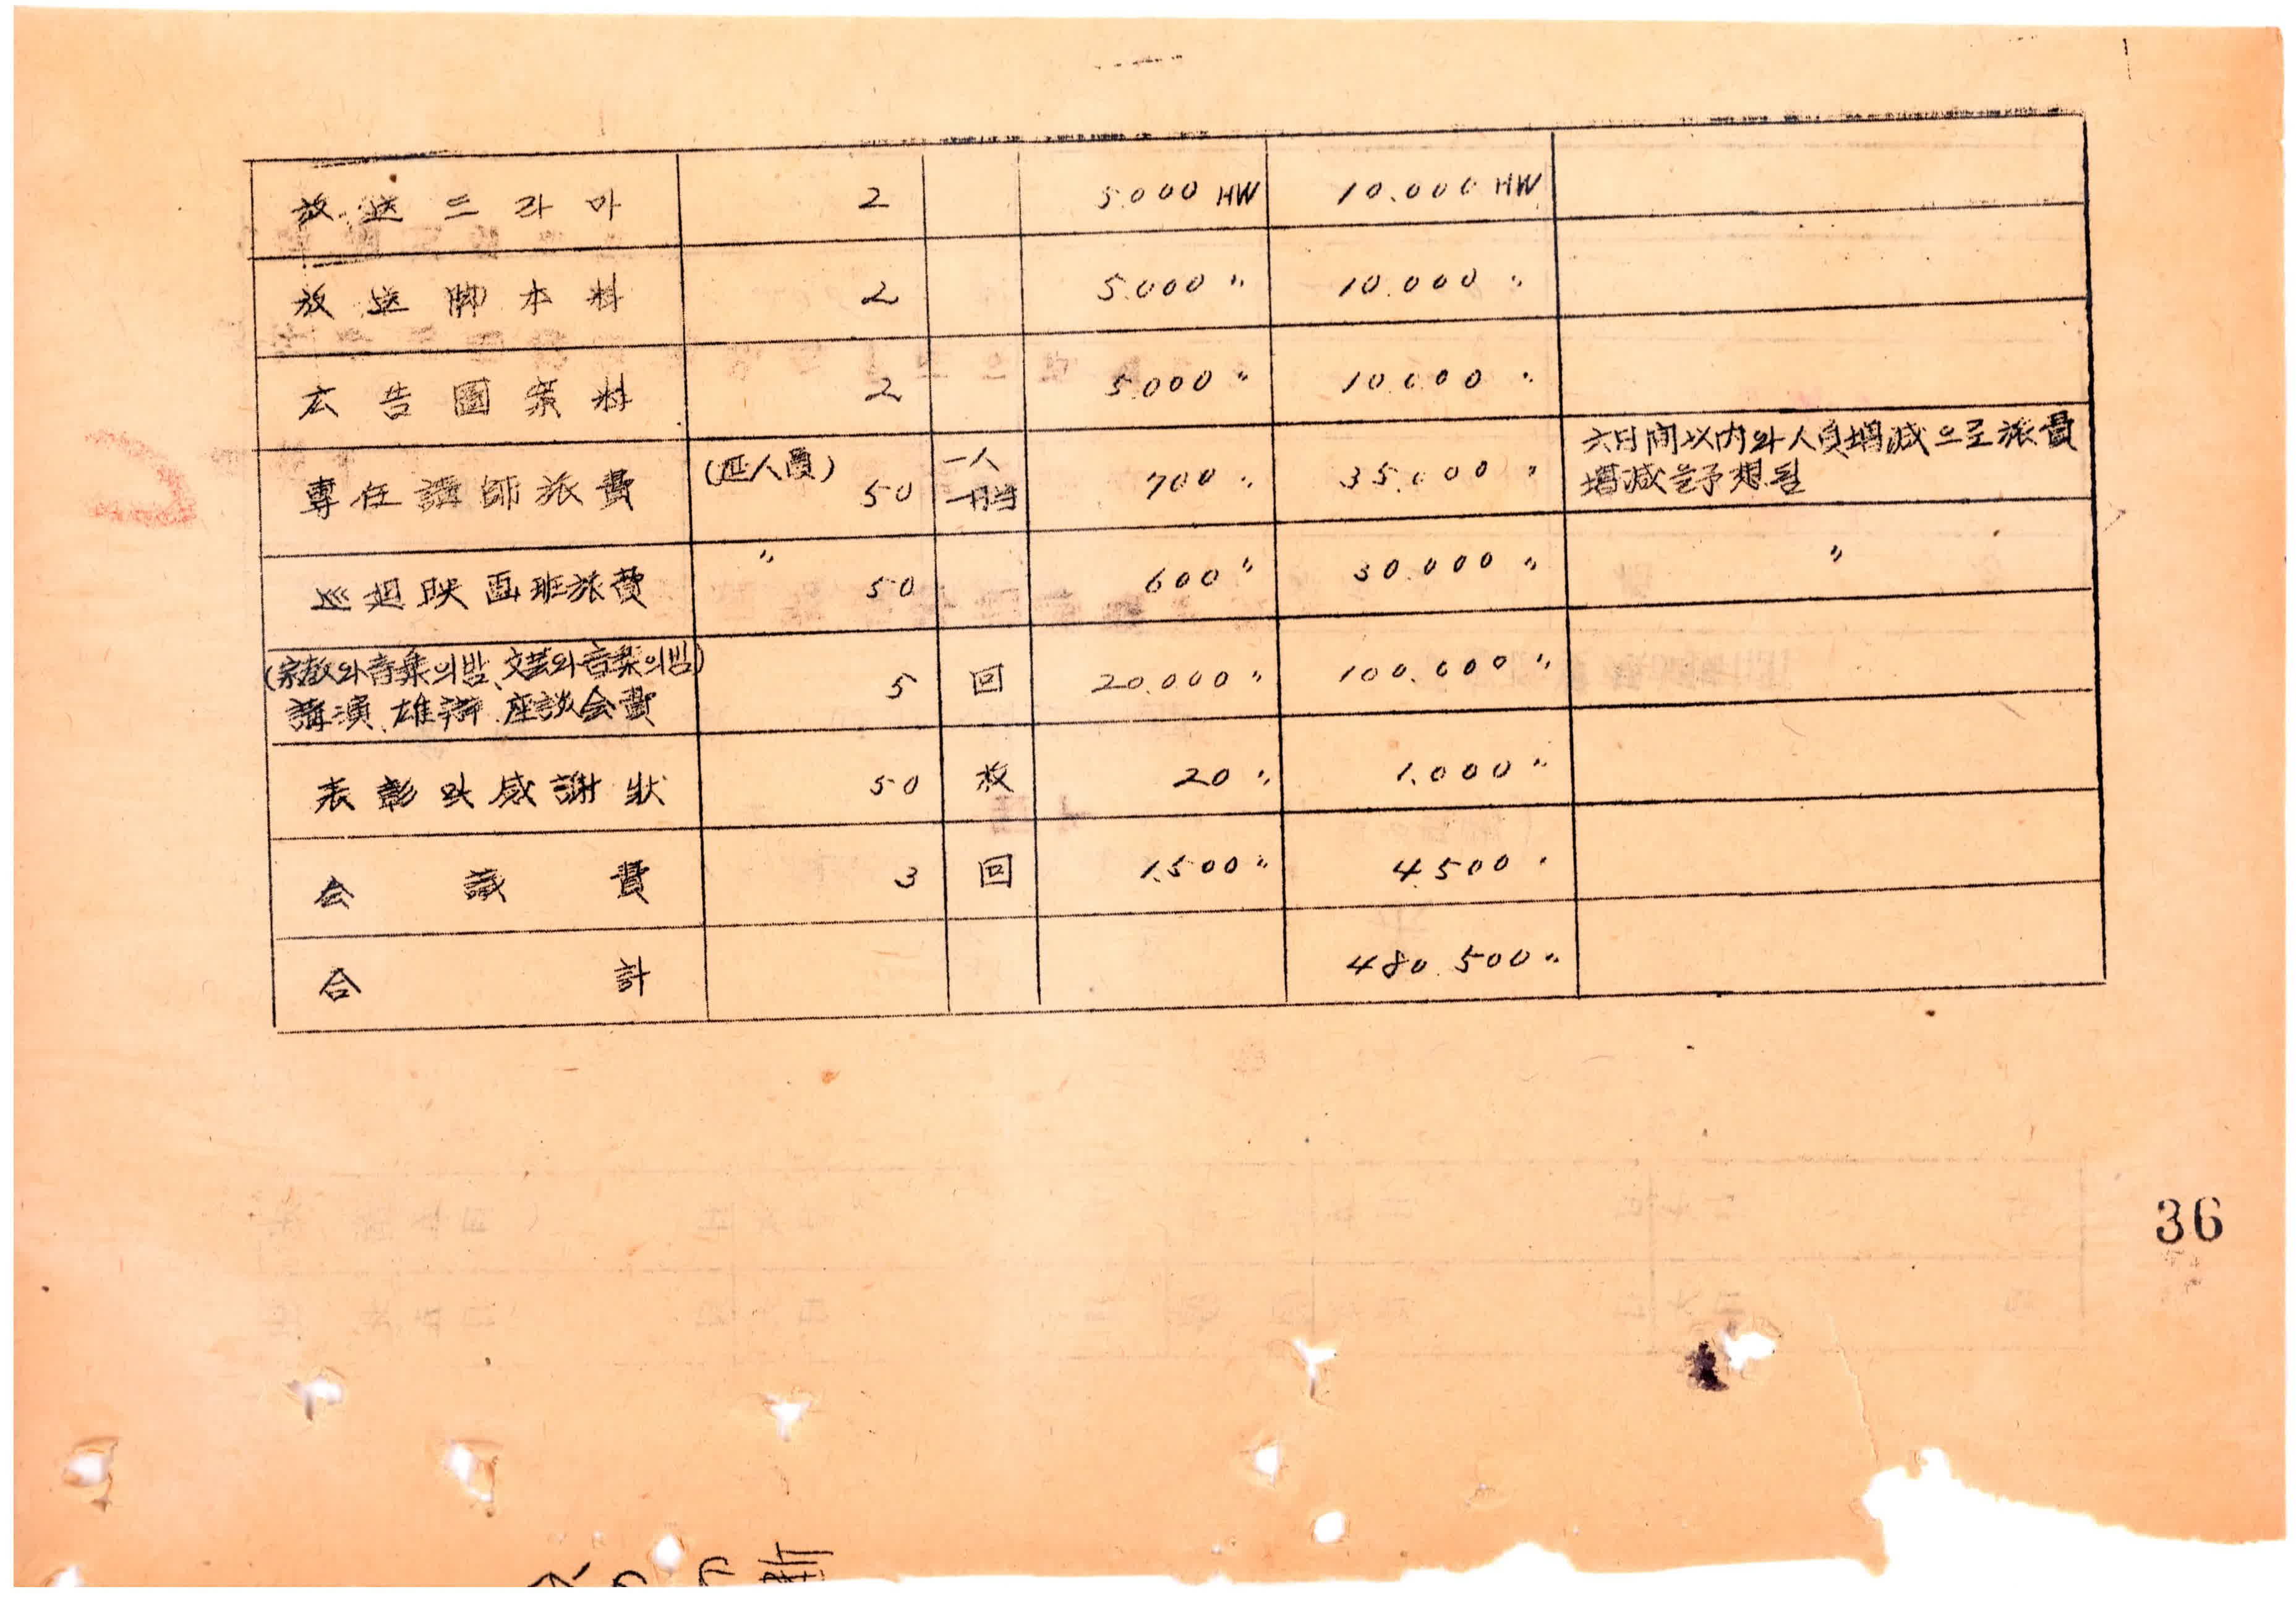 放送드라마 2 5.000 HW 10.000 HW
放送脚本料 2 5.000 〃 10.000 〃
広告圖案料 2 5.000 〃 10.000 〃
専任講師旅費 (延人員) 50 一人一日当 700 〃 35.000 〃 六日間以内와人員増減으로旅費
増減을予想됨
巡廻映画班旅費 〃 50 600 〃 30.000 〃 〃
(宗教와音楽의밤、文芸와音楽의밤)
講演、雄辯、座談会費 5 回 20.000 〃 100.000 〃
表彰及感謝狀 50 枚 20 〃 1.000 〃
会議費 3 回 1.500 〃 4.500 〃
合計 480.500 〃
36